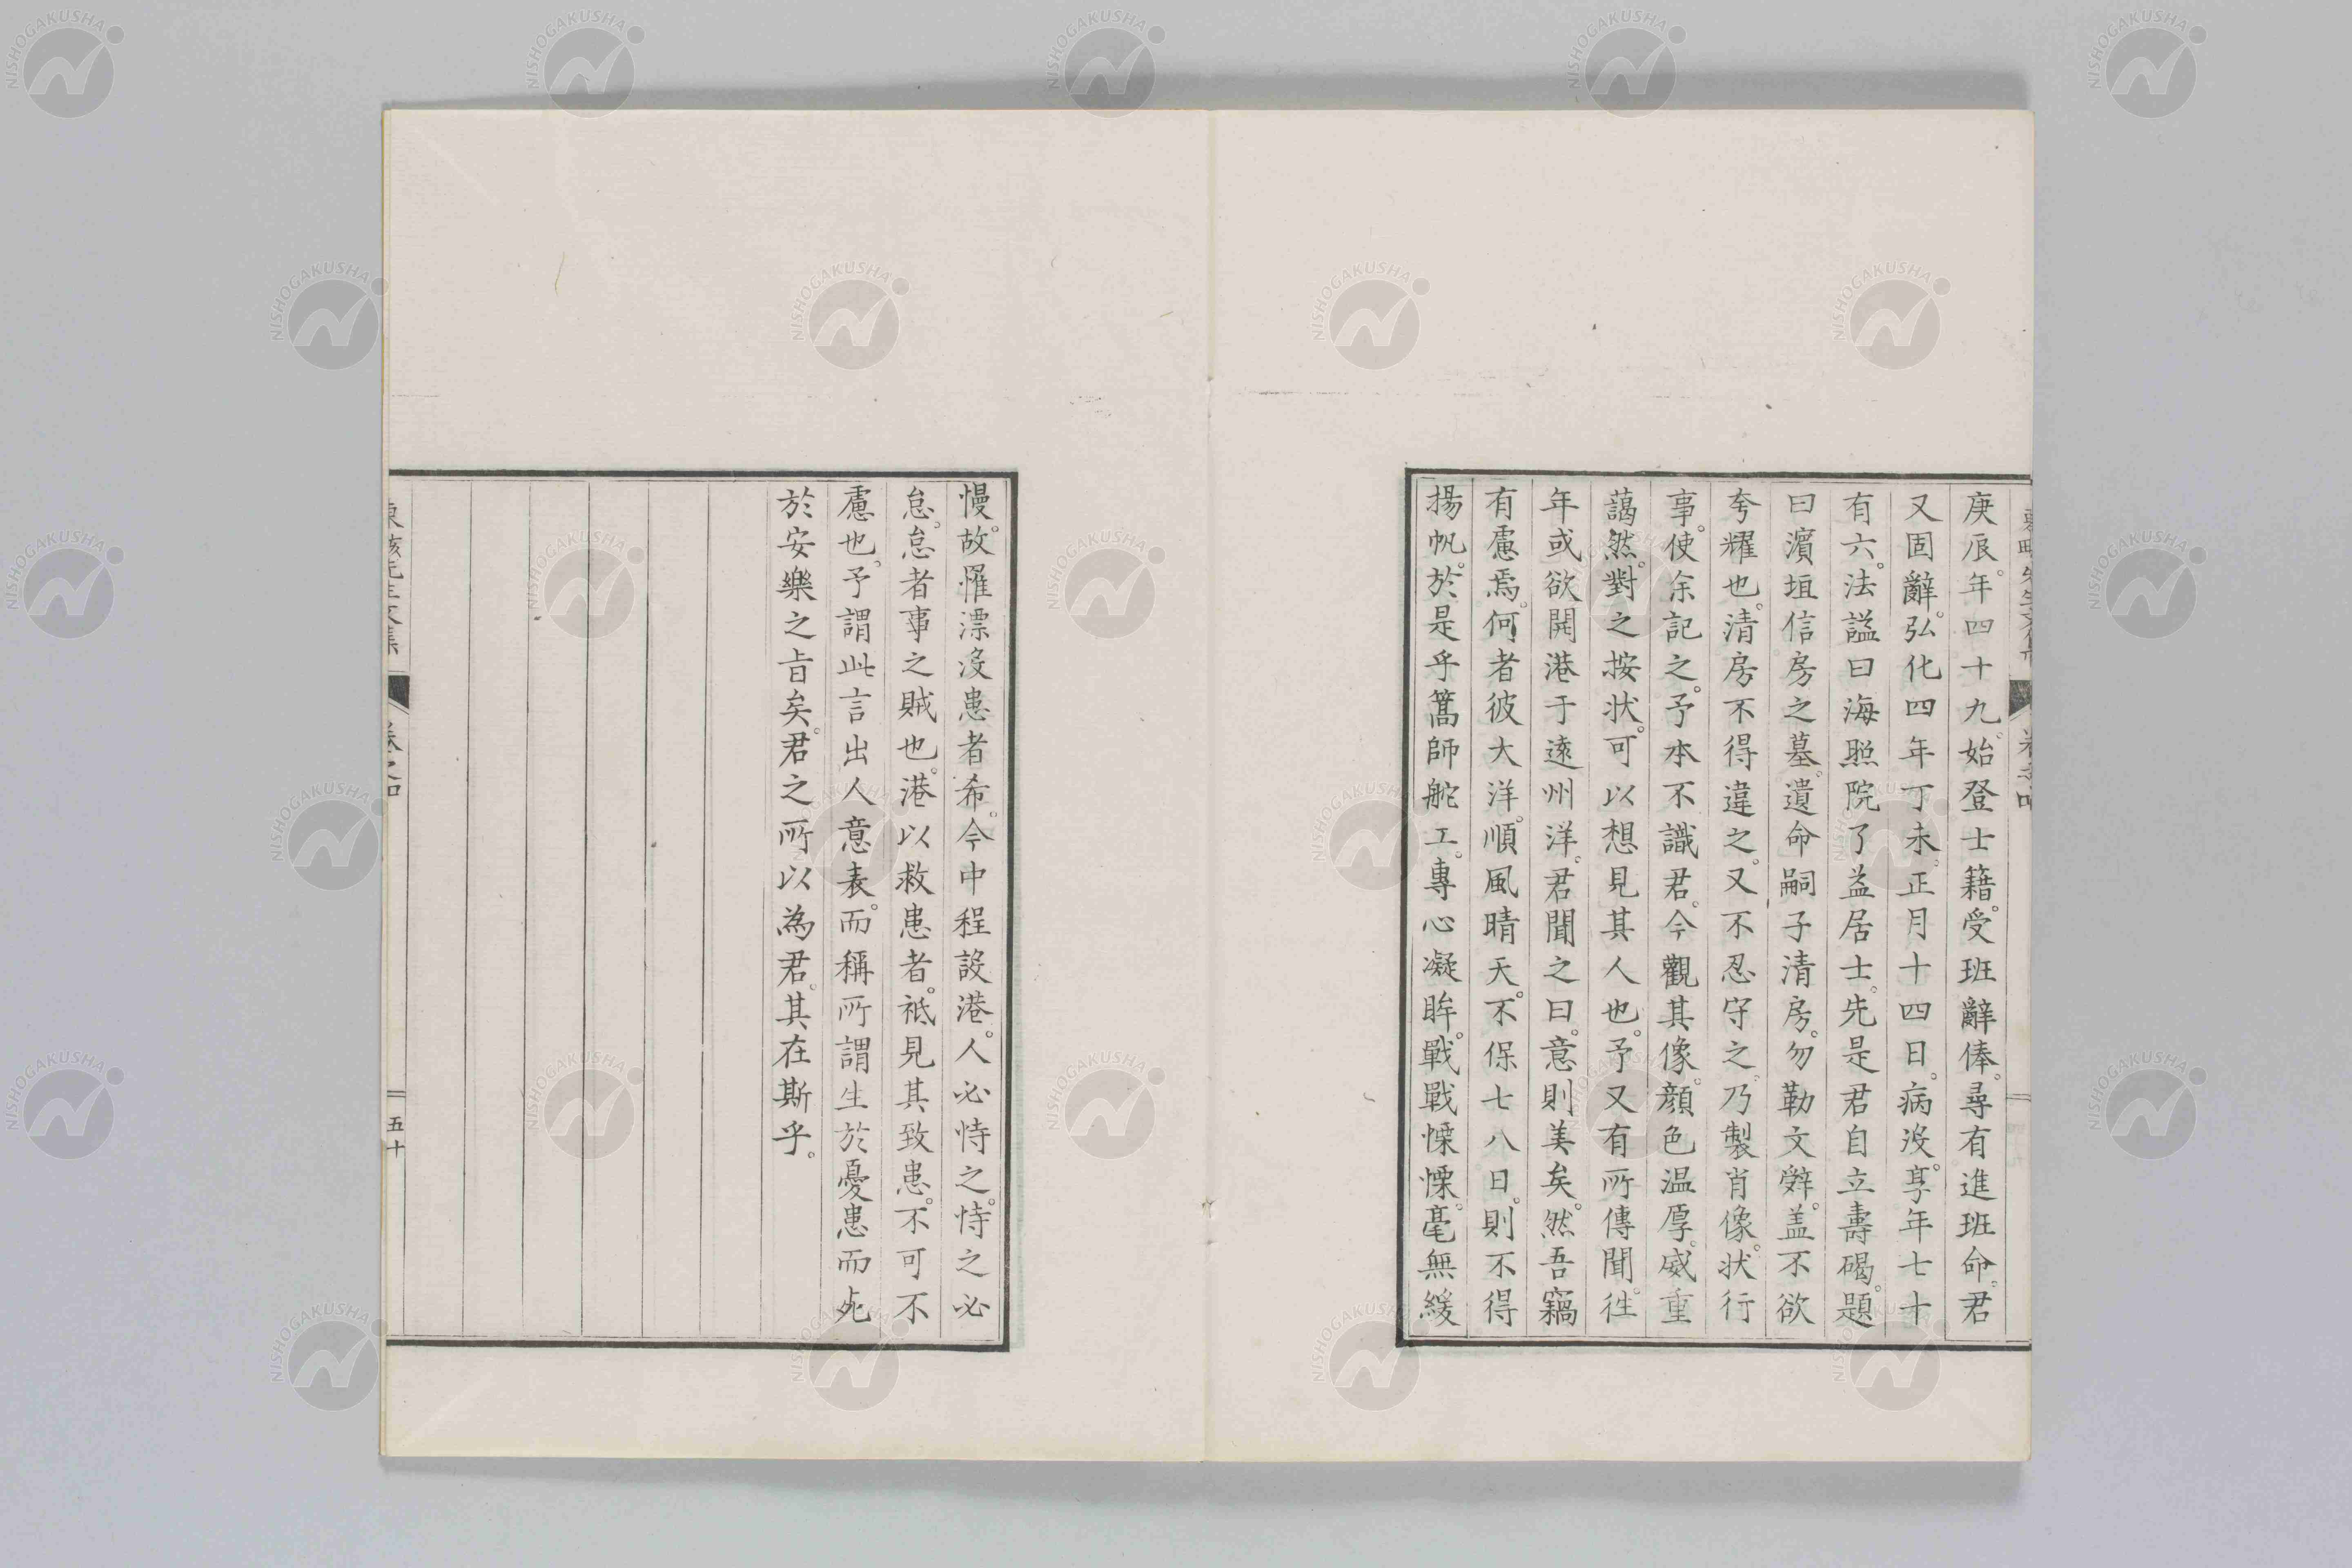 庚辰。年四十九。始登士籍。受班辭俸。尋有進班命。君
又固辭。弘化四年丁未。正月十四日。病沒。享年七十
有六。法謚曰海照院了益居士。先是君自立壽碣。題
曰濱垣信房之墓。遺命嗣子清房。勿勒文辭。盖不欲
夸耀也。清房不得違之。又不忍守之。乃製肖像。狀行
事。使余記之。予本不識君。今觀其像。顏色温厚。威重
藹然。對之按狀。可以想見其人也。予又有所傳聞。往
年或欲開港于遠州洋。君聞之曰。意則美矣。然吾竊
有慮焉。何者彼大洋。順風晴天。不保七八日。則不得
揚帆。於是乎篙師舵工。專心凝眸。戰戰慄慄。毫無緩
慢。故罹漂沒患者希。今中程設港。人必恃之。恃之必
怠。怠者事之賊也。港以救患者。祗見其致患。不可不
慮也。予謂此言出人意表。而稱所謂生於憂患而死
於安樂之旨矣。君之所以為君。其在斯乎。
卷之四
五十
NISHOGAKUSHA